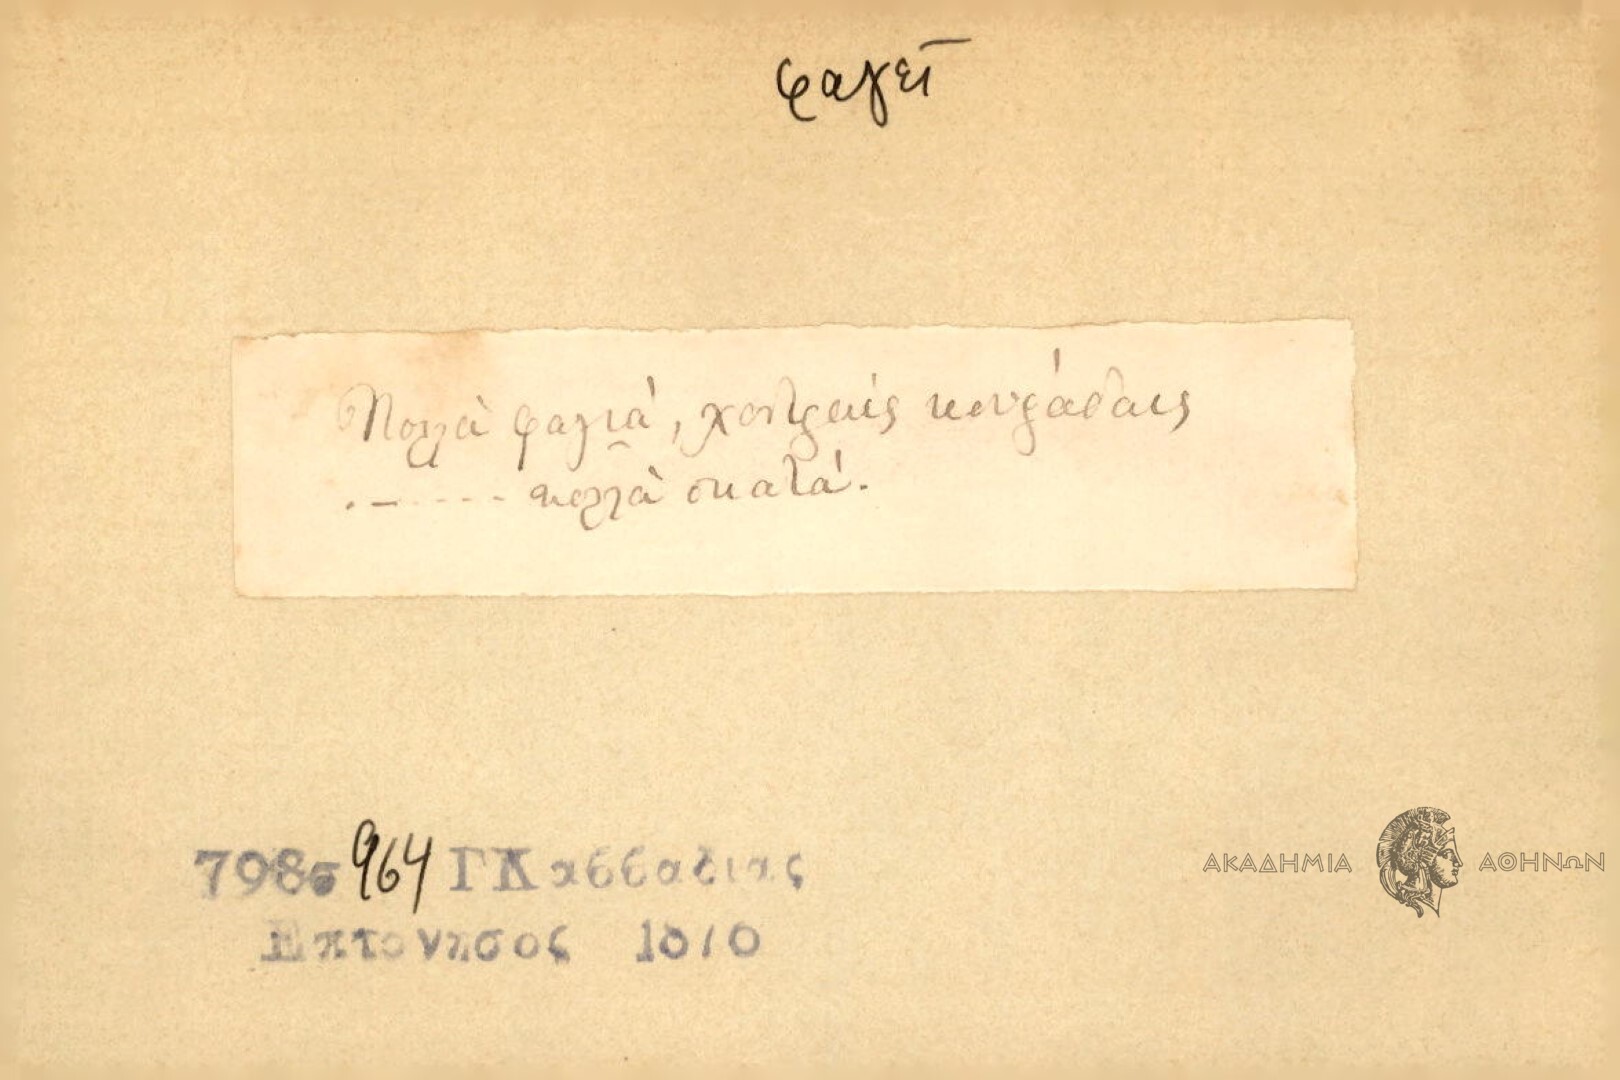 φαγεῖ
Πολλὰ φαγιά, χοντραίς κουράδαις
. – - - - - πολλὰ σκατά.
798σ 964 ΓΚαββαδιας
Επτανησος 1870
ΑΚΑΔΗΜΙΑ ΑΘΗΝΩΝ